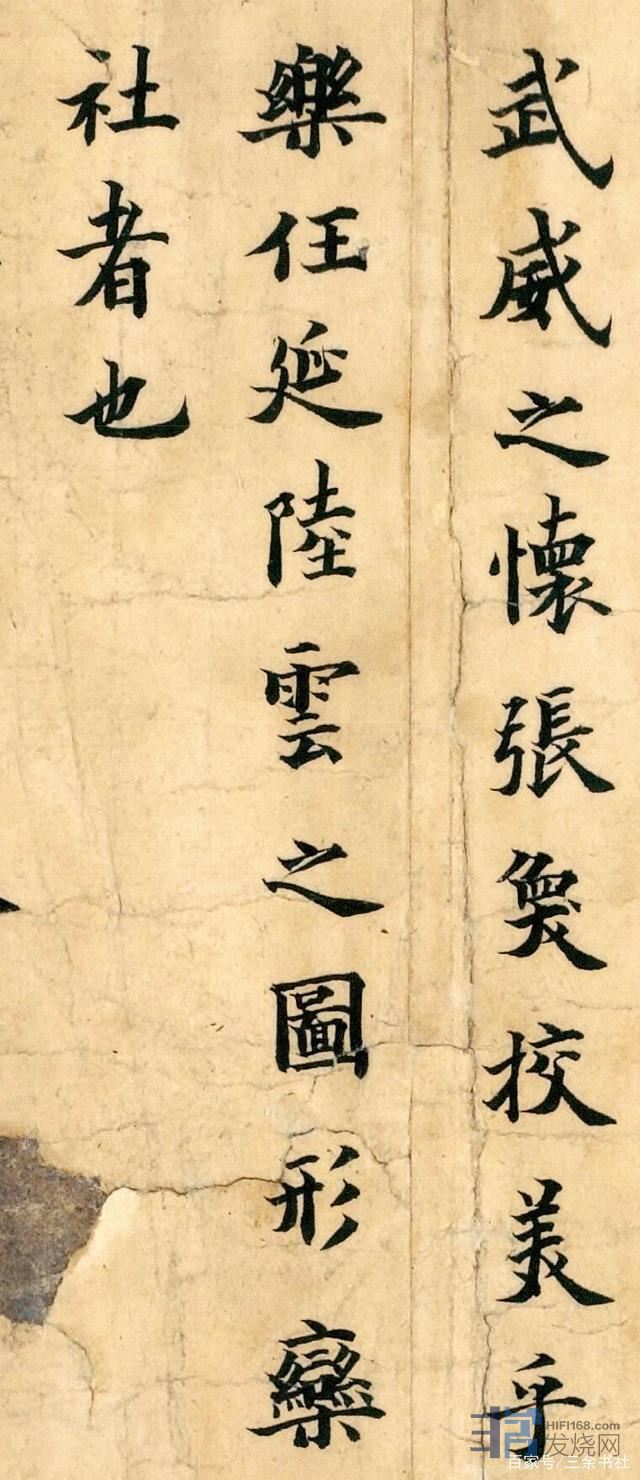 武威之懷張奐挍美乎
樂任延陸雲之圖形欒
社者也
HIFI168.com
发烧网
百家号/三余书社